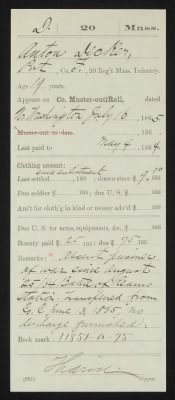 D. 20 Mass.
Anton Decker,
Pvt., Co. E, 20 Reg't Mass. Infantry.
Age 19 years.
Appears on Co. Muster-out Roll, dated
Nr. Washington July 16, 1865.
Muster-out to date , 186 .
Last paid to May 4, 1864.
Clothing account:
since enlistment
Last settled , 186 ; drawn since $ 9 00/100
Due soldier $ 100; due U. S. $ 100
Am't for cloth'g in kind or money adv'd $ 100
Due U. S. for arms, equipments, &c., $ 100
Bounty paid $ 25 100; due $ 75 100
Remarks: Absent prisoner
of war since August
25, '64 Battle of Reams
station, transferred from
Co. E June 3, 1865, no
discharge furnished.
Book mark: 11851-A-95
Copyist.